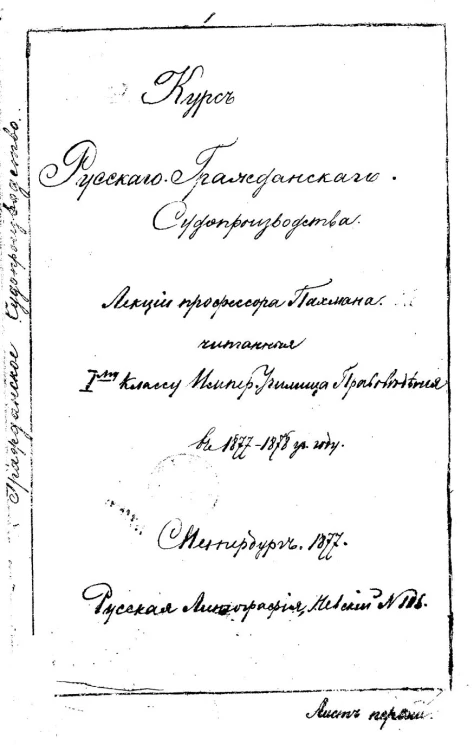 1
Курсъ
Русскаго Гражданскаго
Судопроизводства.
Лекціи профессора Пахмана.
читанныя
Iму классу Импер. Училища Правовѣдѣнія
въ 1877-1878 уч. году.
СПетербургъ. 1877.
Русская Литографія, Невскій N
Листъ первый.
Гражданское Судопроизводство.